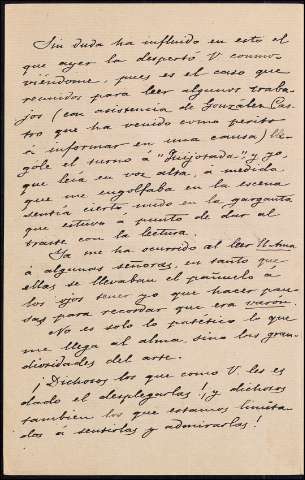 Sin duda ha influido en esto el
que ayer la despertó V conmo-
viéndome, pues es el caso que
reunidos para leer algunos traba-
jos (con asistencia de González Cas-
tro que ha venido como perito
á informar en una causa) lle-
góle el turno á "Quijotada" y yo,
que leía en voz alta, á medida
que me engolfaba en la escena
sentía cierto nudo en la garganta
que estuvo á punto de dar al
traste con la lectura.
Ya me ha ocurrido al leer El Ama
á algunas señoras, en tanto que
ellas se llevaban el pañuelo á
los ojos tener yo que hacer pau-
sas para recordar que era varón.
No es solo lo patético lo que
me llega al alma, sino las gran-
diosidades del arte.
¡Dichosos los que como V. les es
dado el desplegarlas! y dichosos
tambien los que estamos limita-
dos á sentirlas y admirarlas!